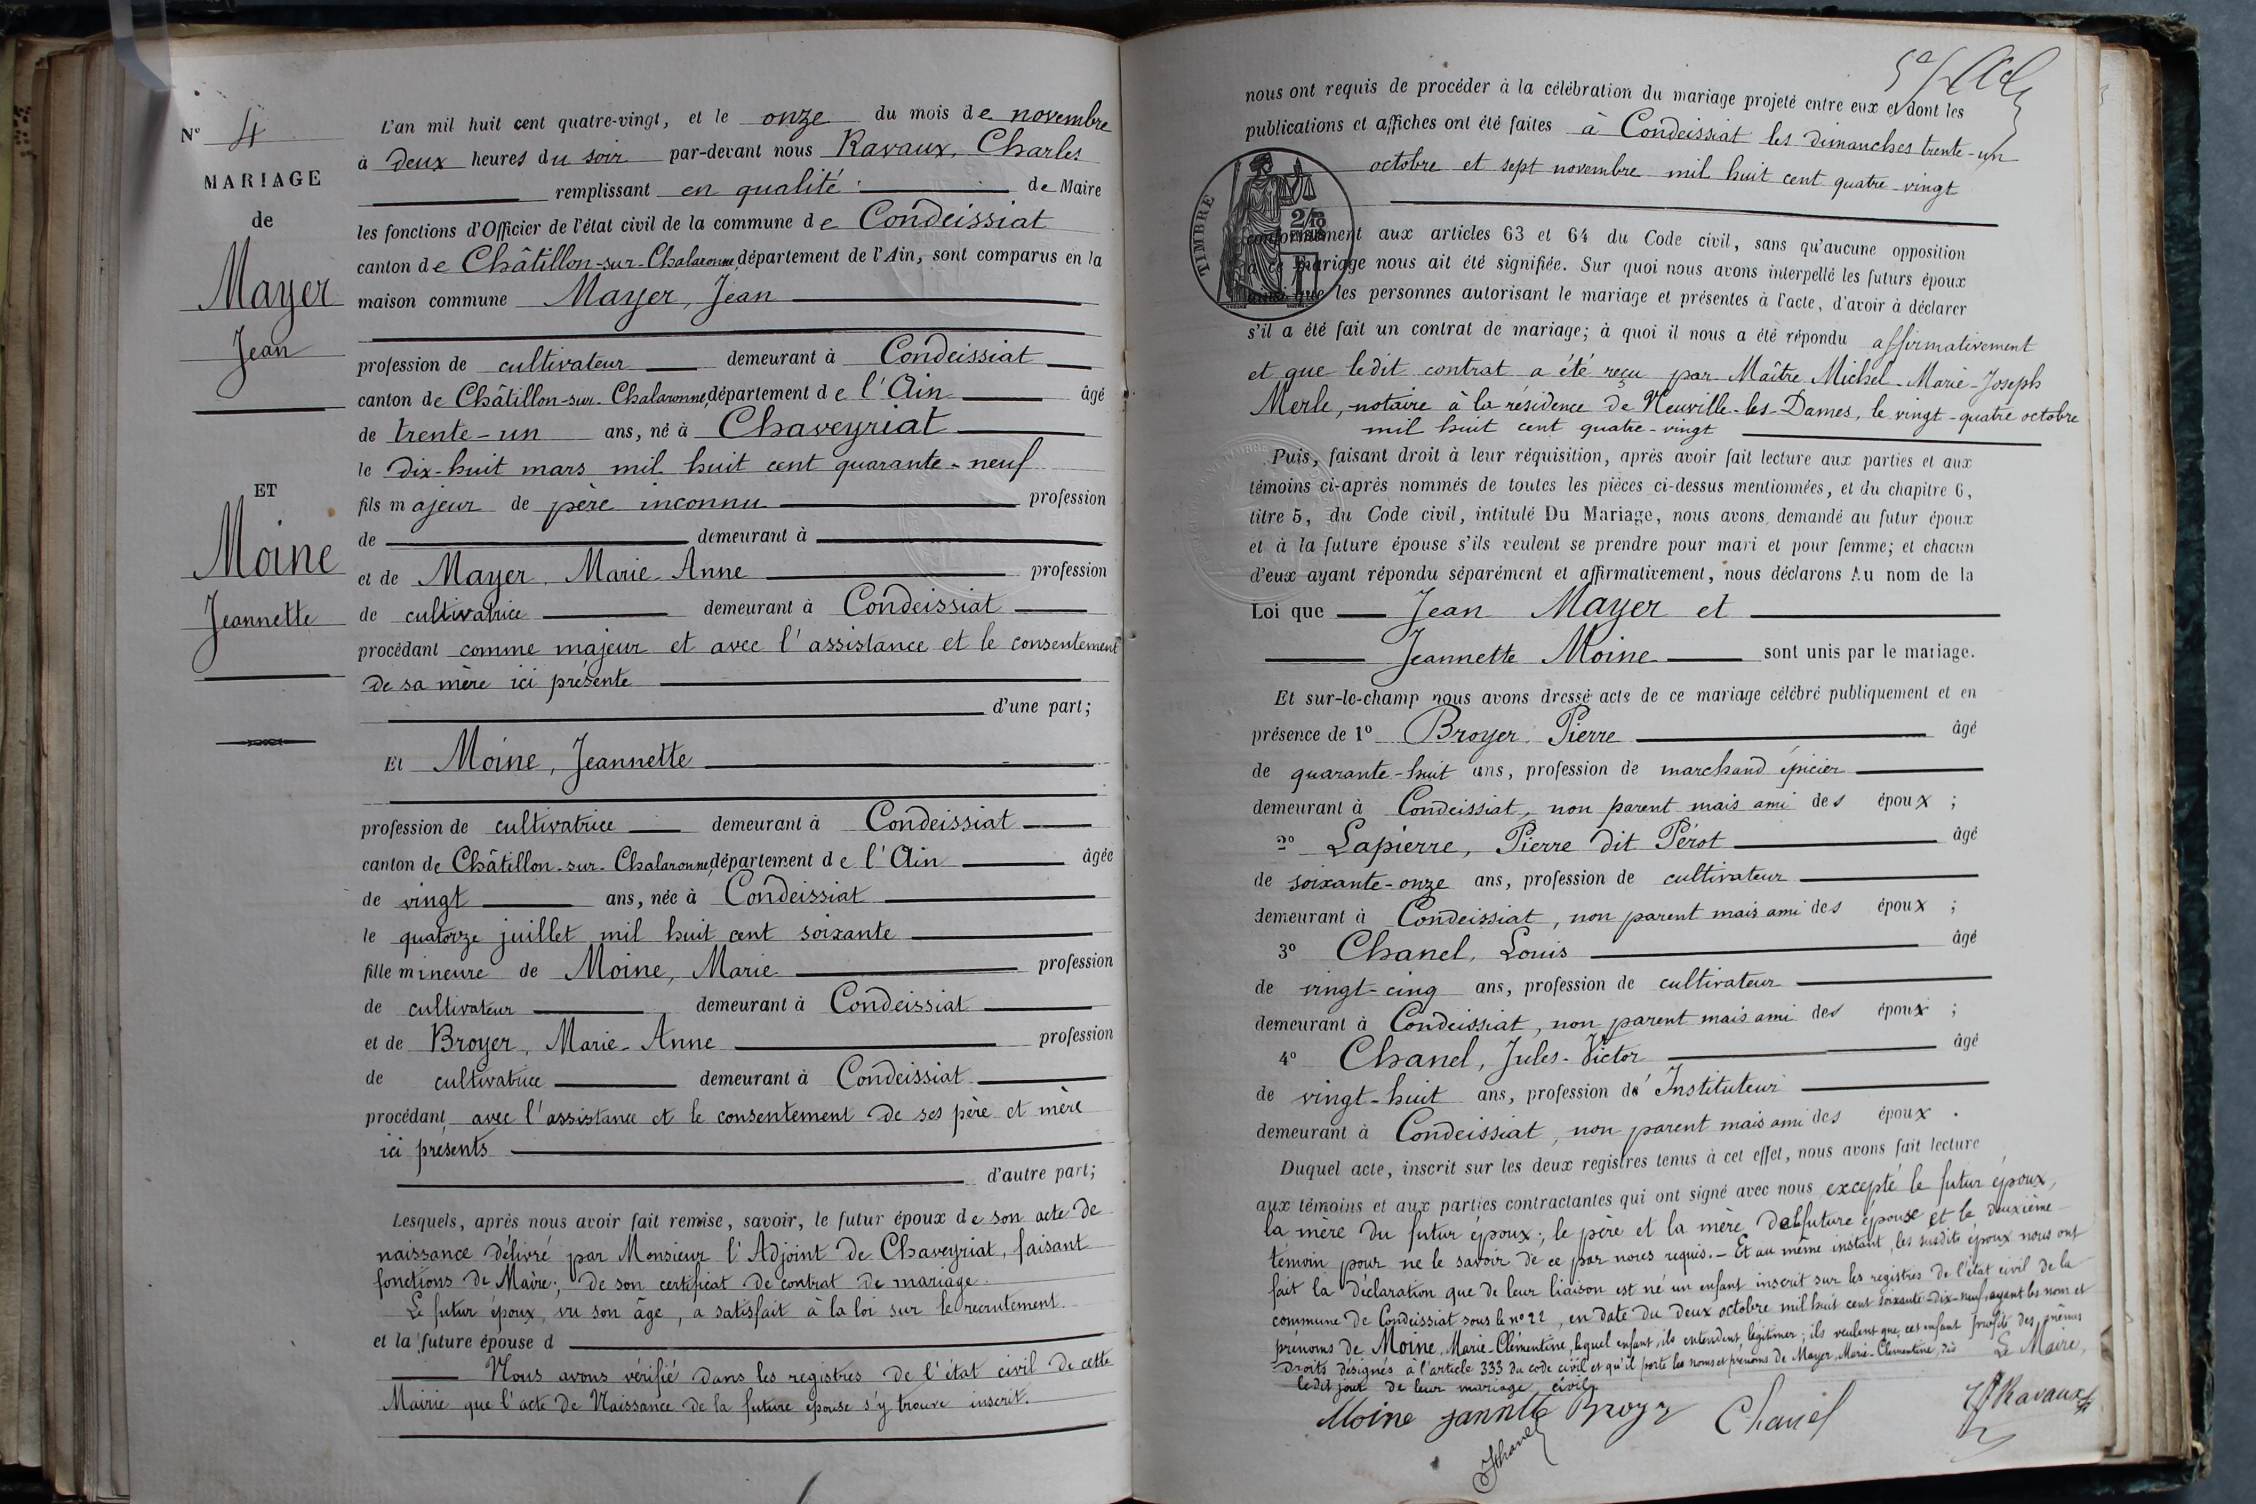 Nº 4
MARIAGE
de
Mayer
Jean
ET
Moine
Jeannette
L'an mil huit cent quatre-vingt, et le onze du mois de novembre
à deux heures du soir par-devant nous Ravaux, Charles
remplissant en qualité de Maire
les fonctions d'Officier de l'état civil de la commune de Condeissiat
canton de Châtillon-sur-Chalaronne, département de l'Ain, sont comparus en la
maison commune Mayer, Jean
profession de cultivateur demeurant à Condeissiat
canton de Châtillon-sur-Chalaronne, département de l'Ain âgé
de trente-un ans, né à Chaveyriat
le dix-huit mars mil huit cent quarante-neuf
fils majeur de père inconnu profession
de demeurant à
et de Mayer, Marie Anne profession
de cultivatrice demeurant à Condeissiat
procédant comme majeur et avec l'assistance et le consentement
de sa mère ici présente
d'une part;
Et Moine, Jeannette
profession de cultivatrice demeurant à Condeissiat
canton de Châtillon-sur-Chalaronne, département de l'Ain âgée
de vingt ans, née à Condeissiat
le quatorze juillet mil huit cent soixante
fille mineure de Moine, Marie profession
de cultivateur demeurant à Condeissiat
et de Broyer, Marie-Anne profession
de cultivatrice demeurant à Condeissiat
procédant avec l'assistance et le consentement de ses père et mère
ici présents
d'autre part;
Lesquels, après nous avoir fait remise, savoir, le futur époux de son acte de
naissance délivré par Monsieur l'Adjoint de Chaveyriat, faisant
fonctions de Maire; de son certificat de contrat de mariage.
Le futur époux, vu son âge, a satisfait à la loi sur le recrutement
et la future épouse d
Nous avons vérifié dans les registres de l'état civil de cette
Mairie que l'acte de Naissance de la future épouse s'y trouve inscrit.
nous ont requis de procéder à la célébration du mariage projeté entre eux et dont les
publications et affiches ont été faites à Condeissiat les dimanches trente-un
octobre et sept novembre mil huit cent quatre-vingt
TIMBRE
conformément aux articles 63 et 64 du Code civil, sans qu'aucune opposition
à ce mariage nous ait été signifiée. Sur quoi nous avons interpellé les futurs époux
ainsi que les personnes autorisant le mariage et présentes à l'acte, d'avoir à déclarer
s'il a été fait un contrat de mariage; à quoi il nous a été répondu affirmativement
et que ledit contrat a été reçu par Maître Michel-Marie-Joseph
Merle, notaire à la résidence de Neuville-les-Dames, le vingt-quatre octobre
mil huit cent quatre-vingt
Puis, faisant droit à leur réquisition, après avoir fait lecture aux parties et aux
témoins ci-après nommés de toutes les pièces ci-dessus mentionnées, et du chapitre 6,
titre 5, du Code civil, intitulé Du Mariage, nous avons demandé au futur époux
et à la future épouse s'ils veulent se prendre pour mari et pour femme; et chacun
d'eux ayant répondu séparément et affirmativement, nous déclarons Au nom de la
Loi que Jean Mayer et
Jeannette Moine sont unis par le mariage.
Et sur-le-champ nous avons dressé acte de ce mariage célébré publiquement et en
présence de 1º Broyer Pierre âgé
de quarante-huit ans, profession de marchand épicier
demeurant à Condeissiat, non parent mais ami des époux ;
2º Lapierre, Pierre dit Pérot âgé
de soixante-onze ans, profession de cultivateur
demeurant à Condeissiat, non parent mais ami des époux ;
3º Chanel, Louis âgé
de vingt-cinq ans, profession de cultivateur
demeurant à Condeissiat, non parent mais ami des époux ;
4º Chanel, Jules-Victor âgé
de vingt-huit ans, profession d'Instituteur
demeurant à Condeissiat, non parent mais ami des époux .
Duquel acte, inscrit sur les deux registres tenus à cet effet, nous avons fait lecture
aux témoins et aux parties contractantes qui ont signé avec nous excepté le futur époux,
la mère du futur époux; le père et la mère de la future épouse et le deuxième
témoin pour ne le savoir de ce par nous requis. – Et au même instant, les susdits époux nous ont
fait la déclaration que de leur liaison est né un enfant inscrit sur les registres de l'état civil de la
commune de Condeissiat sous le nº 22, en date du deux octobre mil huit cent soixante-dix-neuf, ayant les nom et
prénoms de Moine, Marie-Clémentine, lequel enfant, ils entendent légitimer; ils veulent que cet enfant profite des mêmes
droits désignés à l'article 333 du code civil et qu'il porte les noms et prénoms de Mayer, Marie-Clémentine, dès
ledit jour de leur mariage civil.
Le Maire,
Moine jannette Broyer Chanel Ravaux
Chanel